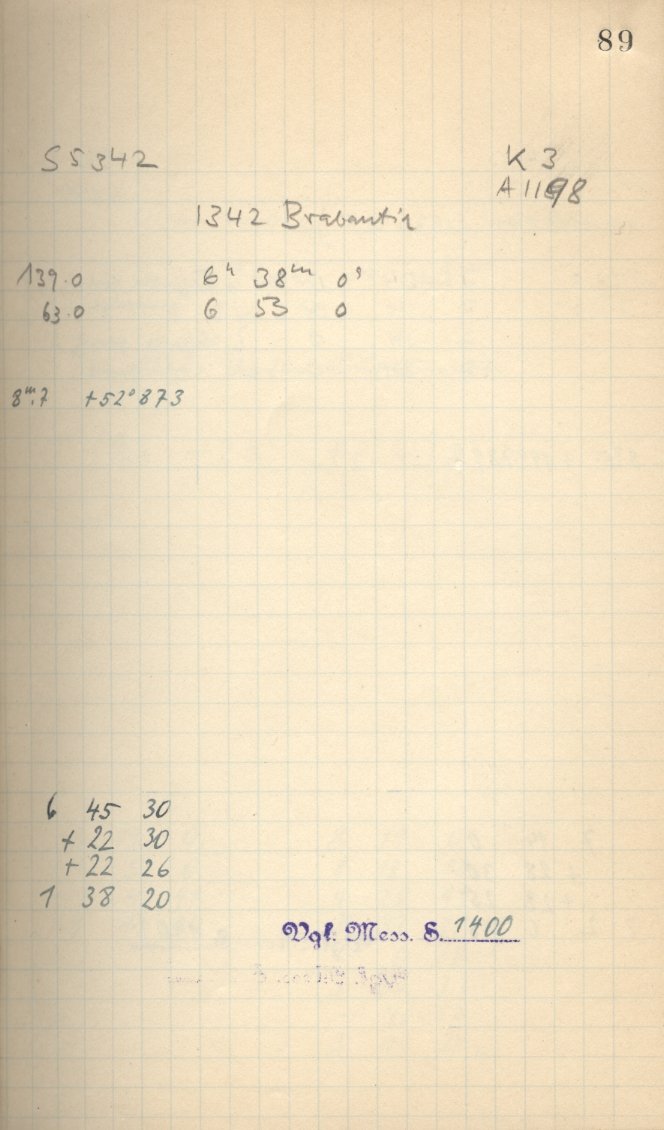 89
S 5342 K 3
A 1198
1342 Brabantia
139.0 6ʰ 38ᵐ 0ˢ
63.0 6 53 0
8ᵐ.7 +52°873
6 45 30
+ 22 30
+ 22 26
1 38 20
Vgl. Mess. S. 1400